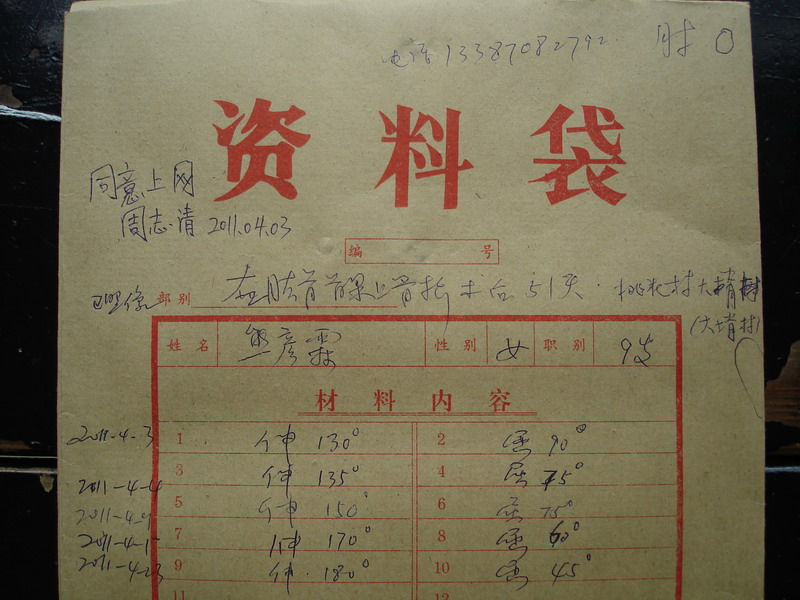 电话 13387082792. 肘 0
资料袋
同意上网
周志清 2011.04.03
编 号
已照像 部别 左肱骨髁上骨折术后51天. 桃花村大塘村
(大塘村)
姓名 熊彦霖 性别 女 职别 9岁
材料内容
2011-4-3 1 伸 130° 2 屈 90°
2011-4-4 3 伸 135° 4 屈 75°
2011-4-9 5 伸 150° 6 屈 75°
2011-4-15 7 伸 170° 8 屈 60°
2011-4-23 9 伸. 180° 10 屈 45°
11 12